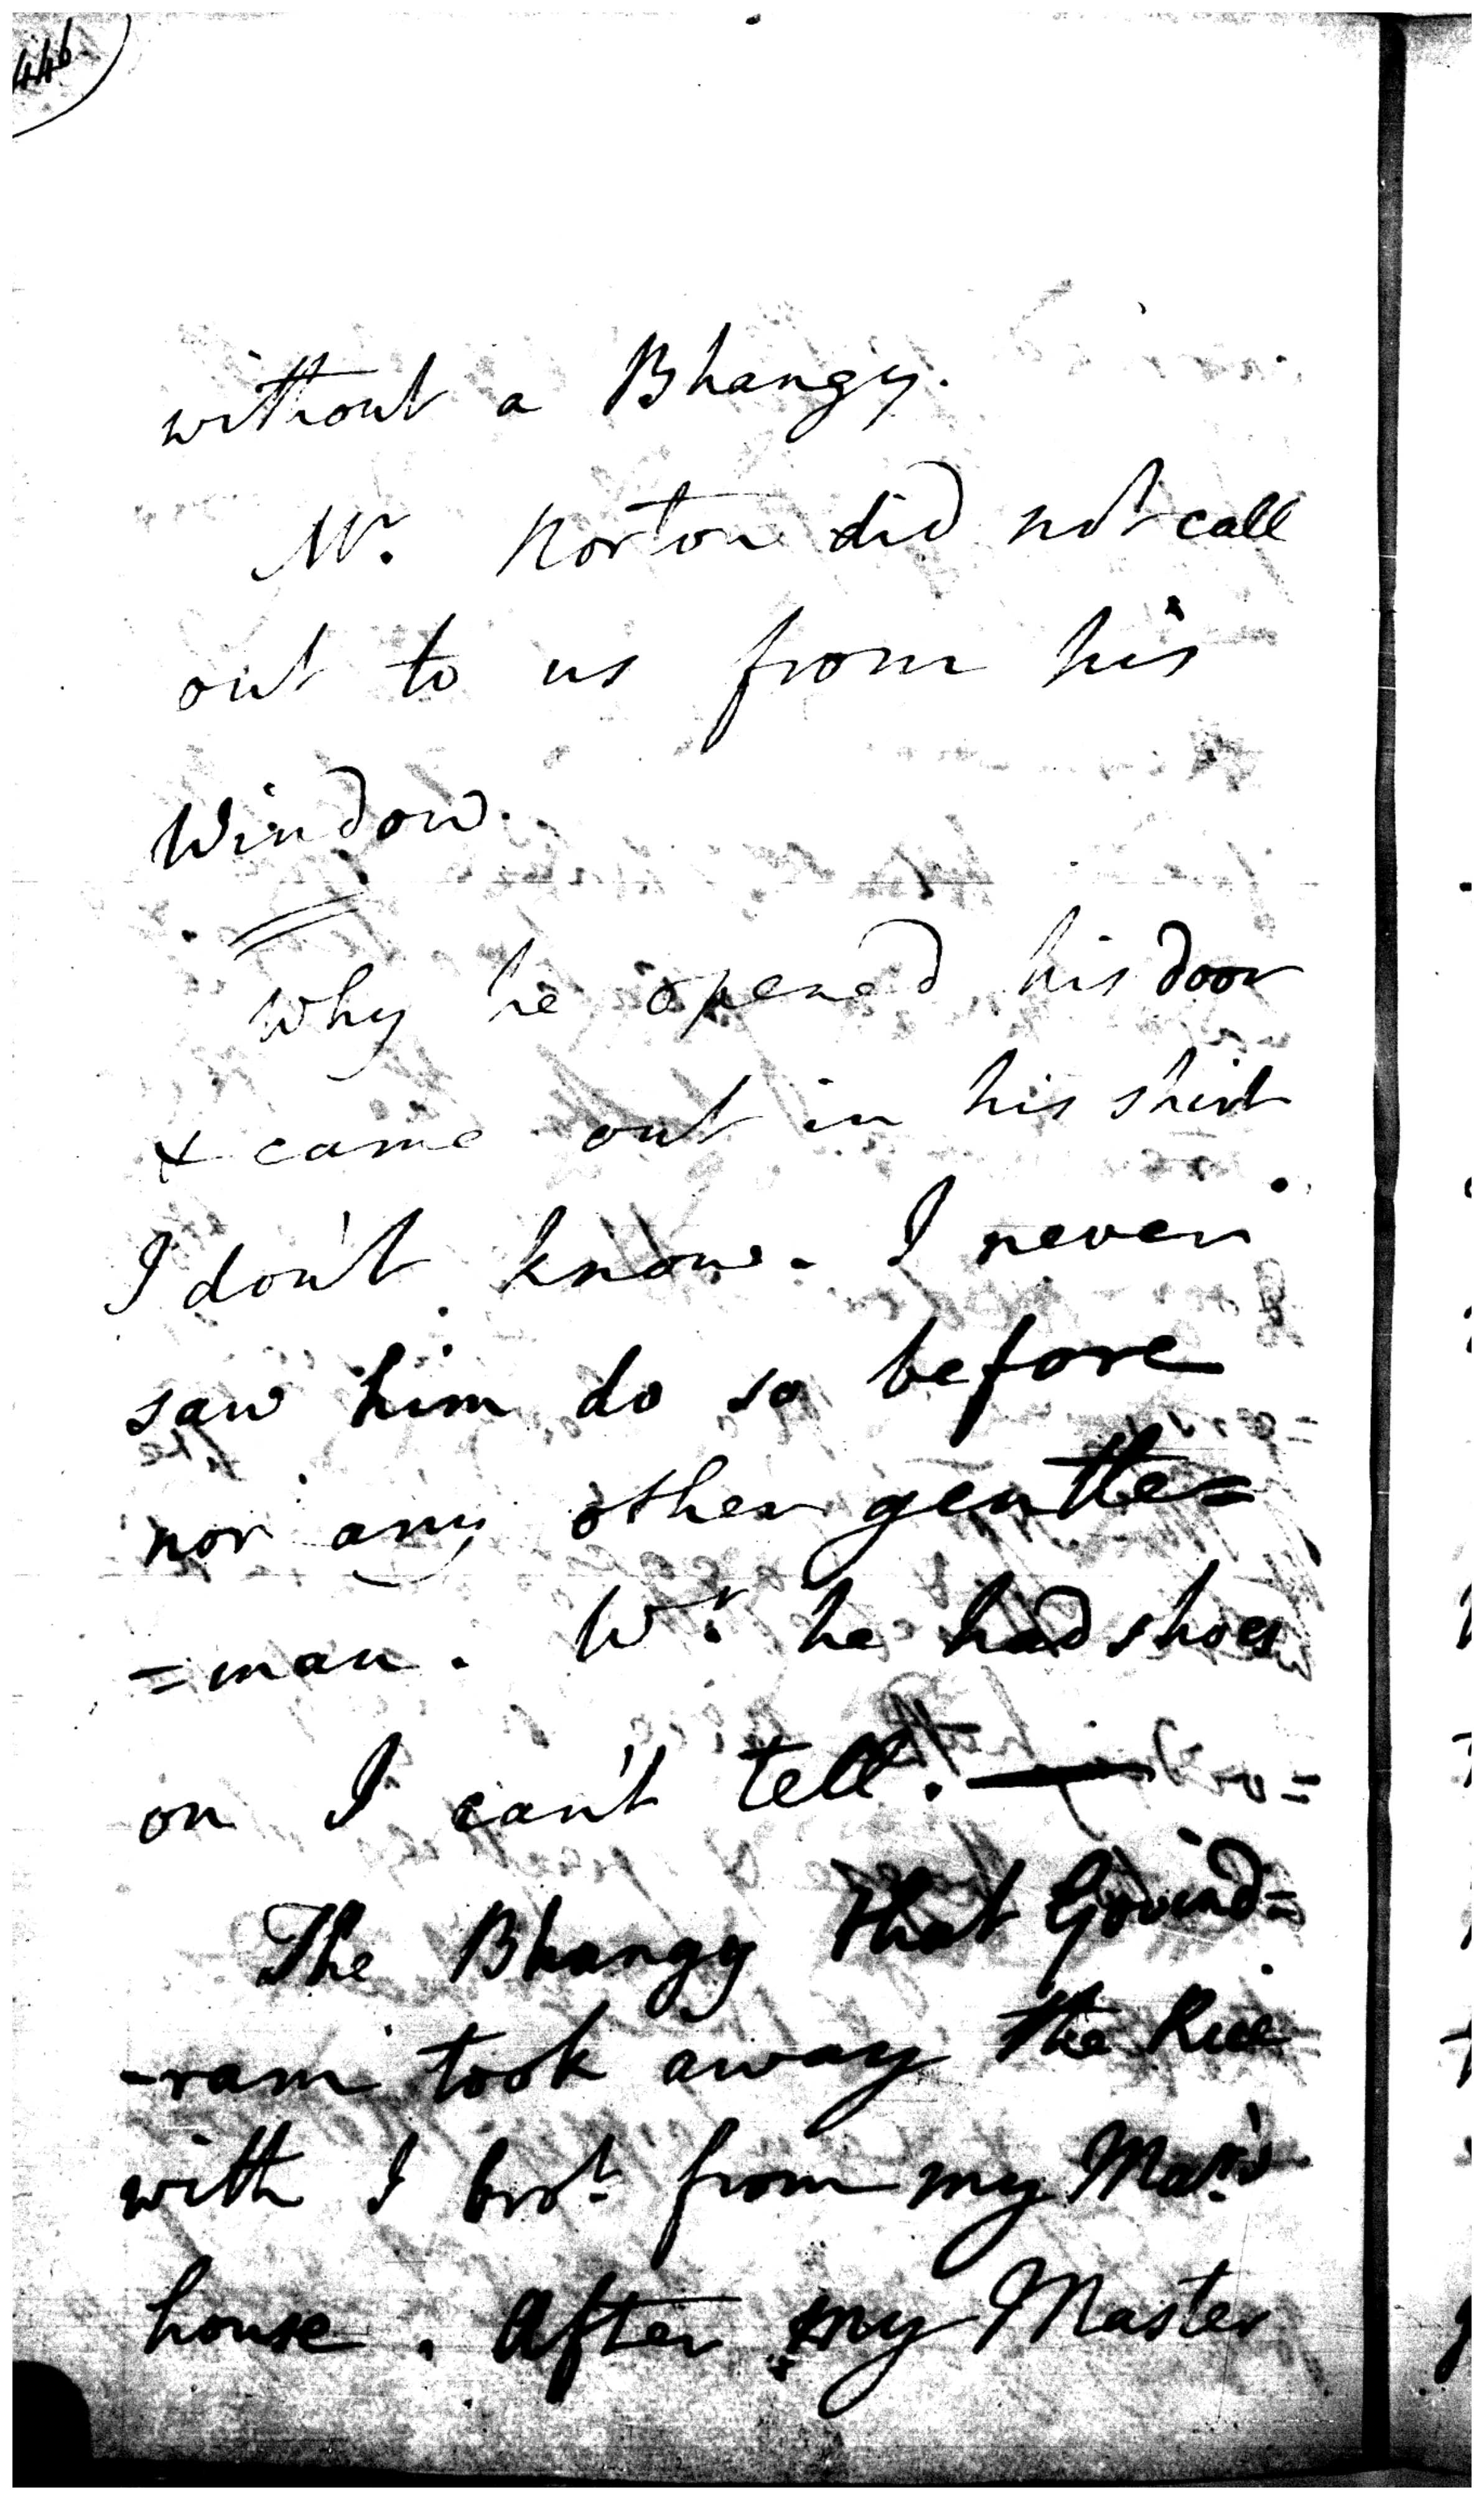 446
without a Bhangy.
Mr. Norton did not call
out to us from his
Window.
Why he opened his door
& came out in his shirt
I don't know. I never
saw him do so before
nor any other gentle=
=man. Wr. he had shoes
on I can't tell. —
The Bhangy that Govind=
-ram took away the Rice
with I brot. from my Mas.r's
house. After my Master